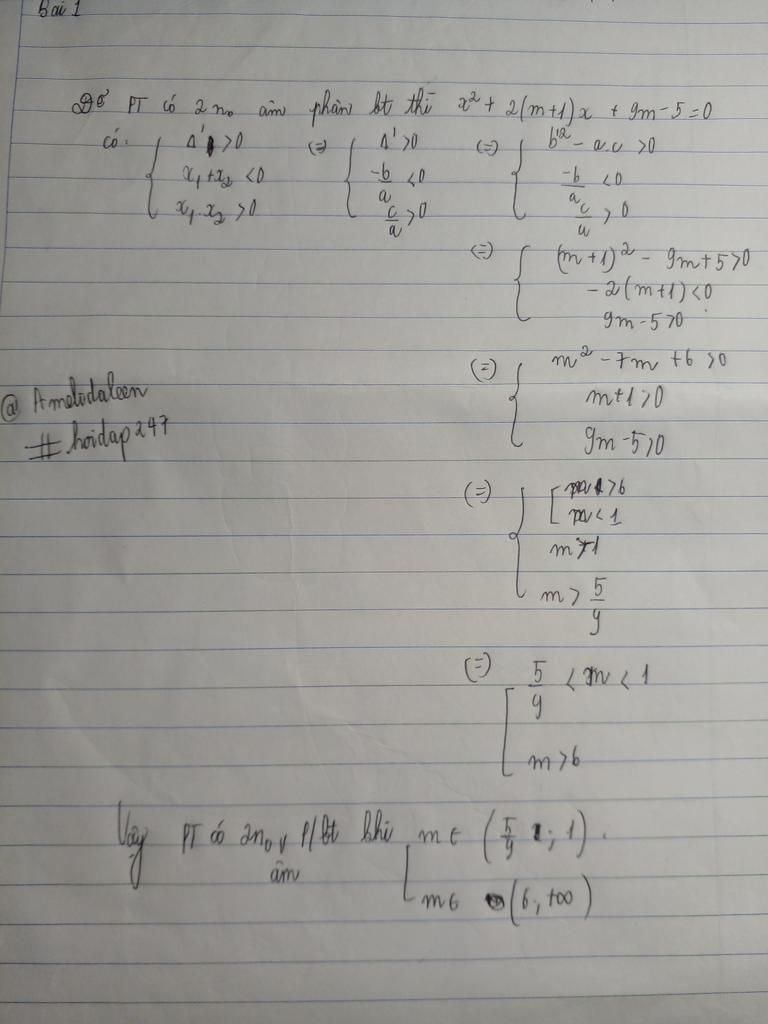 Bài 1
Để PT có 2 n₀ âm phân bt thì x² + 2(m+1)x + 9m-5=0
có: { Δ' >0 (=) { Δ' >0 (=) { b'² - a.c >0
x₁+x₂ <0 -b/a <0 -b/a <0
x₁.x₂ >0 c/a >0 c/a >0
(=) { (m+1)² - 9m+5>0
-2(m+1)<0
9m-5>0
(=) { m² -7m +6 >0
m+1>0
9m-5>0
@ Amelodaleen
# hoidap247
(=) { [ m >6
m < 1
m 1
m > 5/9
(=) [ 5/9 < m < 1
m >6
Vậy PT có 2n₀ âm p/bt khi [ m ∈ (5/9 ; 1).
m ∈ (6; +∞)